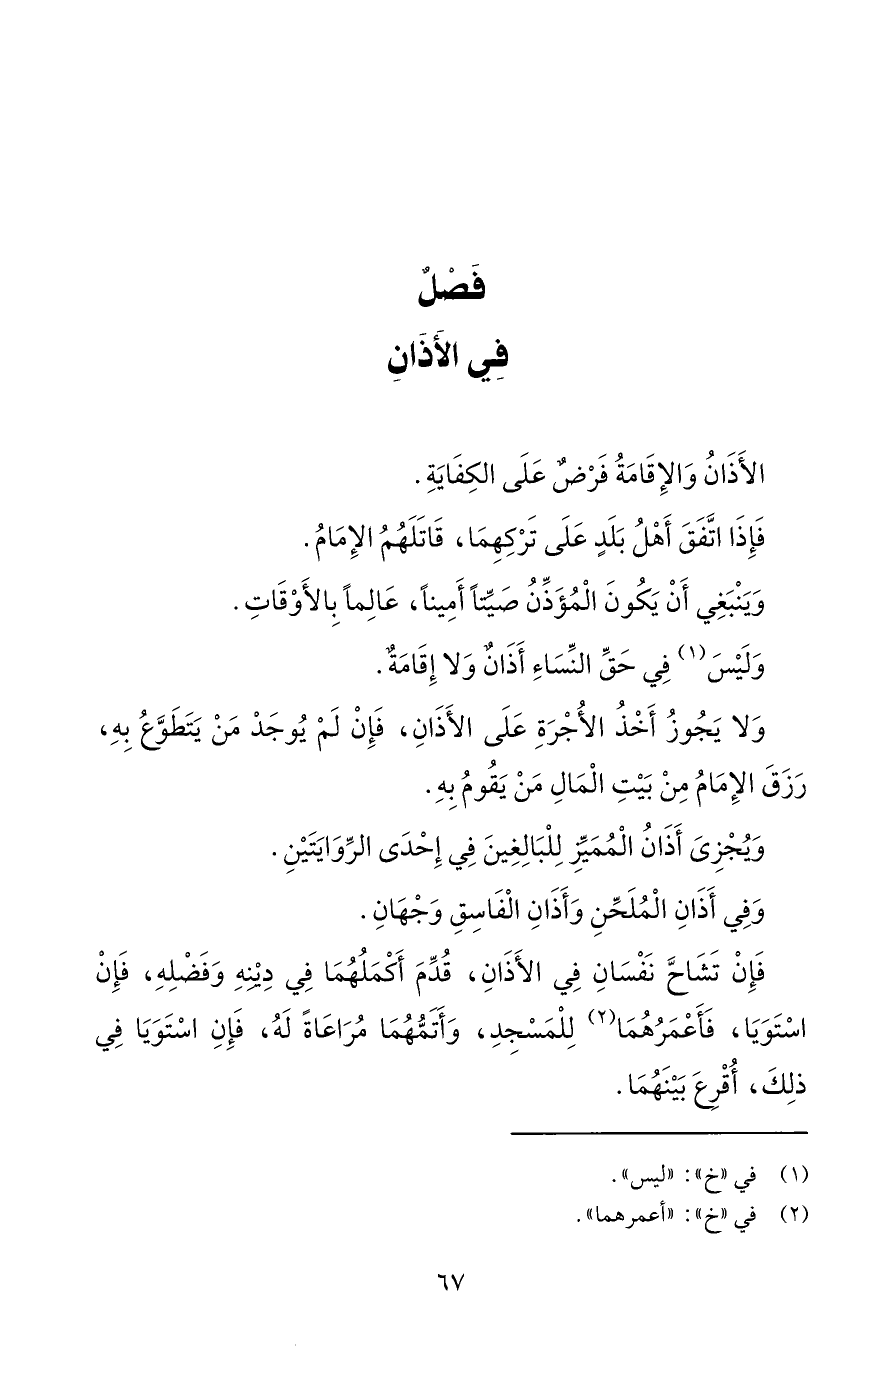 فَصْلٌ
فِي الأَذَانِ
الأَذَانُ وَالإِقَامَةُ فَرْضٌ عَلَى الكِفَايَةِ .
فَإِذَا اتَّفَقَ أَهْلُ بَلَدٍ عَلَى تَرْكِهِمَا، قَاتَلَهُمُ الإِمَامُ.
وَيَنْبَغِي أَنْ يَكُونَ الْمُؤَذِّنُ صَيِّتاً أَمِيناً، عَالِماً بِالأَوْقَاتِ .
وَلَيْسَ(١) فِي حَقِّ النِّسَاءِ أَذَانٌ وَلا إِقَامَةٌ.
وَلا يَجُوزُ أَخْذُ الأُجْرَةِ عَلَى الأَذَانِ، فَإِنْ لَمْ يُوجَدْ مَنْ يَتَطَوَّعُ بِهِ،
رَزَقَ الإِمَامُ مِنْ بَيْتِ الْمَالِ مَنْ يَقُومُ بِهِ.
وَيُجْزِىَ أَذَانُ الْمُمَيِّزِ لِلْبَالِغِينَ فِي إِحْدَى الرِّوَايَتَيْنِ.
وَفِي أَذَانِ الْمُلَحِّنِ وَأَذَانِ الْفَاسِقِ وَجْهَانِ.
فَإِنْ تَشَاحَّ نَفْسَانِ فِي الأَذَانِ، قُدِّمَ أَكْمَلُهُمَا فِي دِيْنِهِ وَفَضْلِهِ، فَإِنْ
اسْتَوَيَا، فَأَعْمَرُهُمَا(٢) لِلْمَسْجِدِ، وَأَتَمُّهُمَا مُرَاعَاةً لَهُ، فَإِنِ اسْتَوَيَا فِي
ذلِكَ، أُقْرِعَ بَيْنَهُمَا.
(١) في «خ»: «ليس».
(٢) في «خ»: «أعمرهما».
٦٧